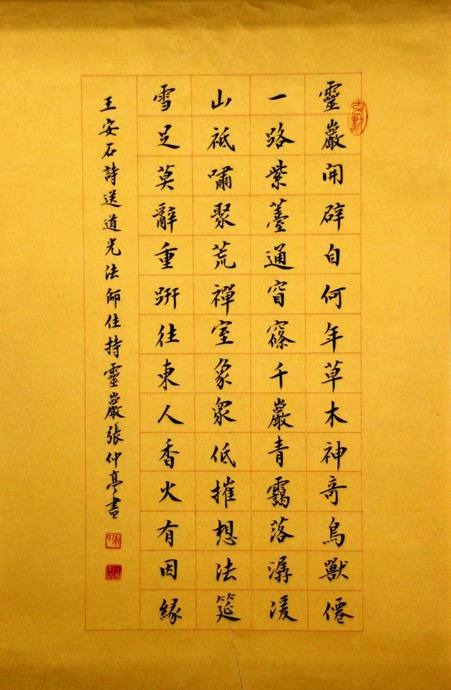 靈巖開辟自何年草木神奇鳥獸僊
一路紫薹通窅窱千巖青靄落潺湲
山祗嘯聚荒禪室象衆低摧想法筵
雪足莫辭重趼往東人香火有因緣
王安石詩送道光法師住持靈巖張仲亭書